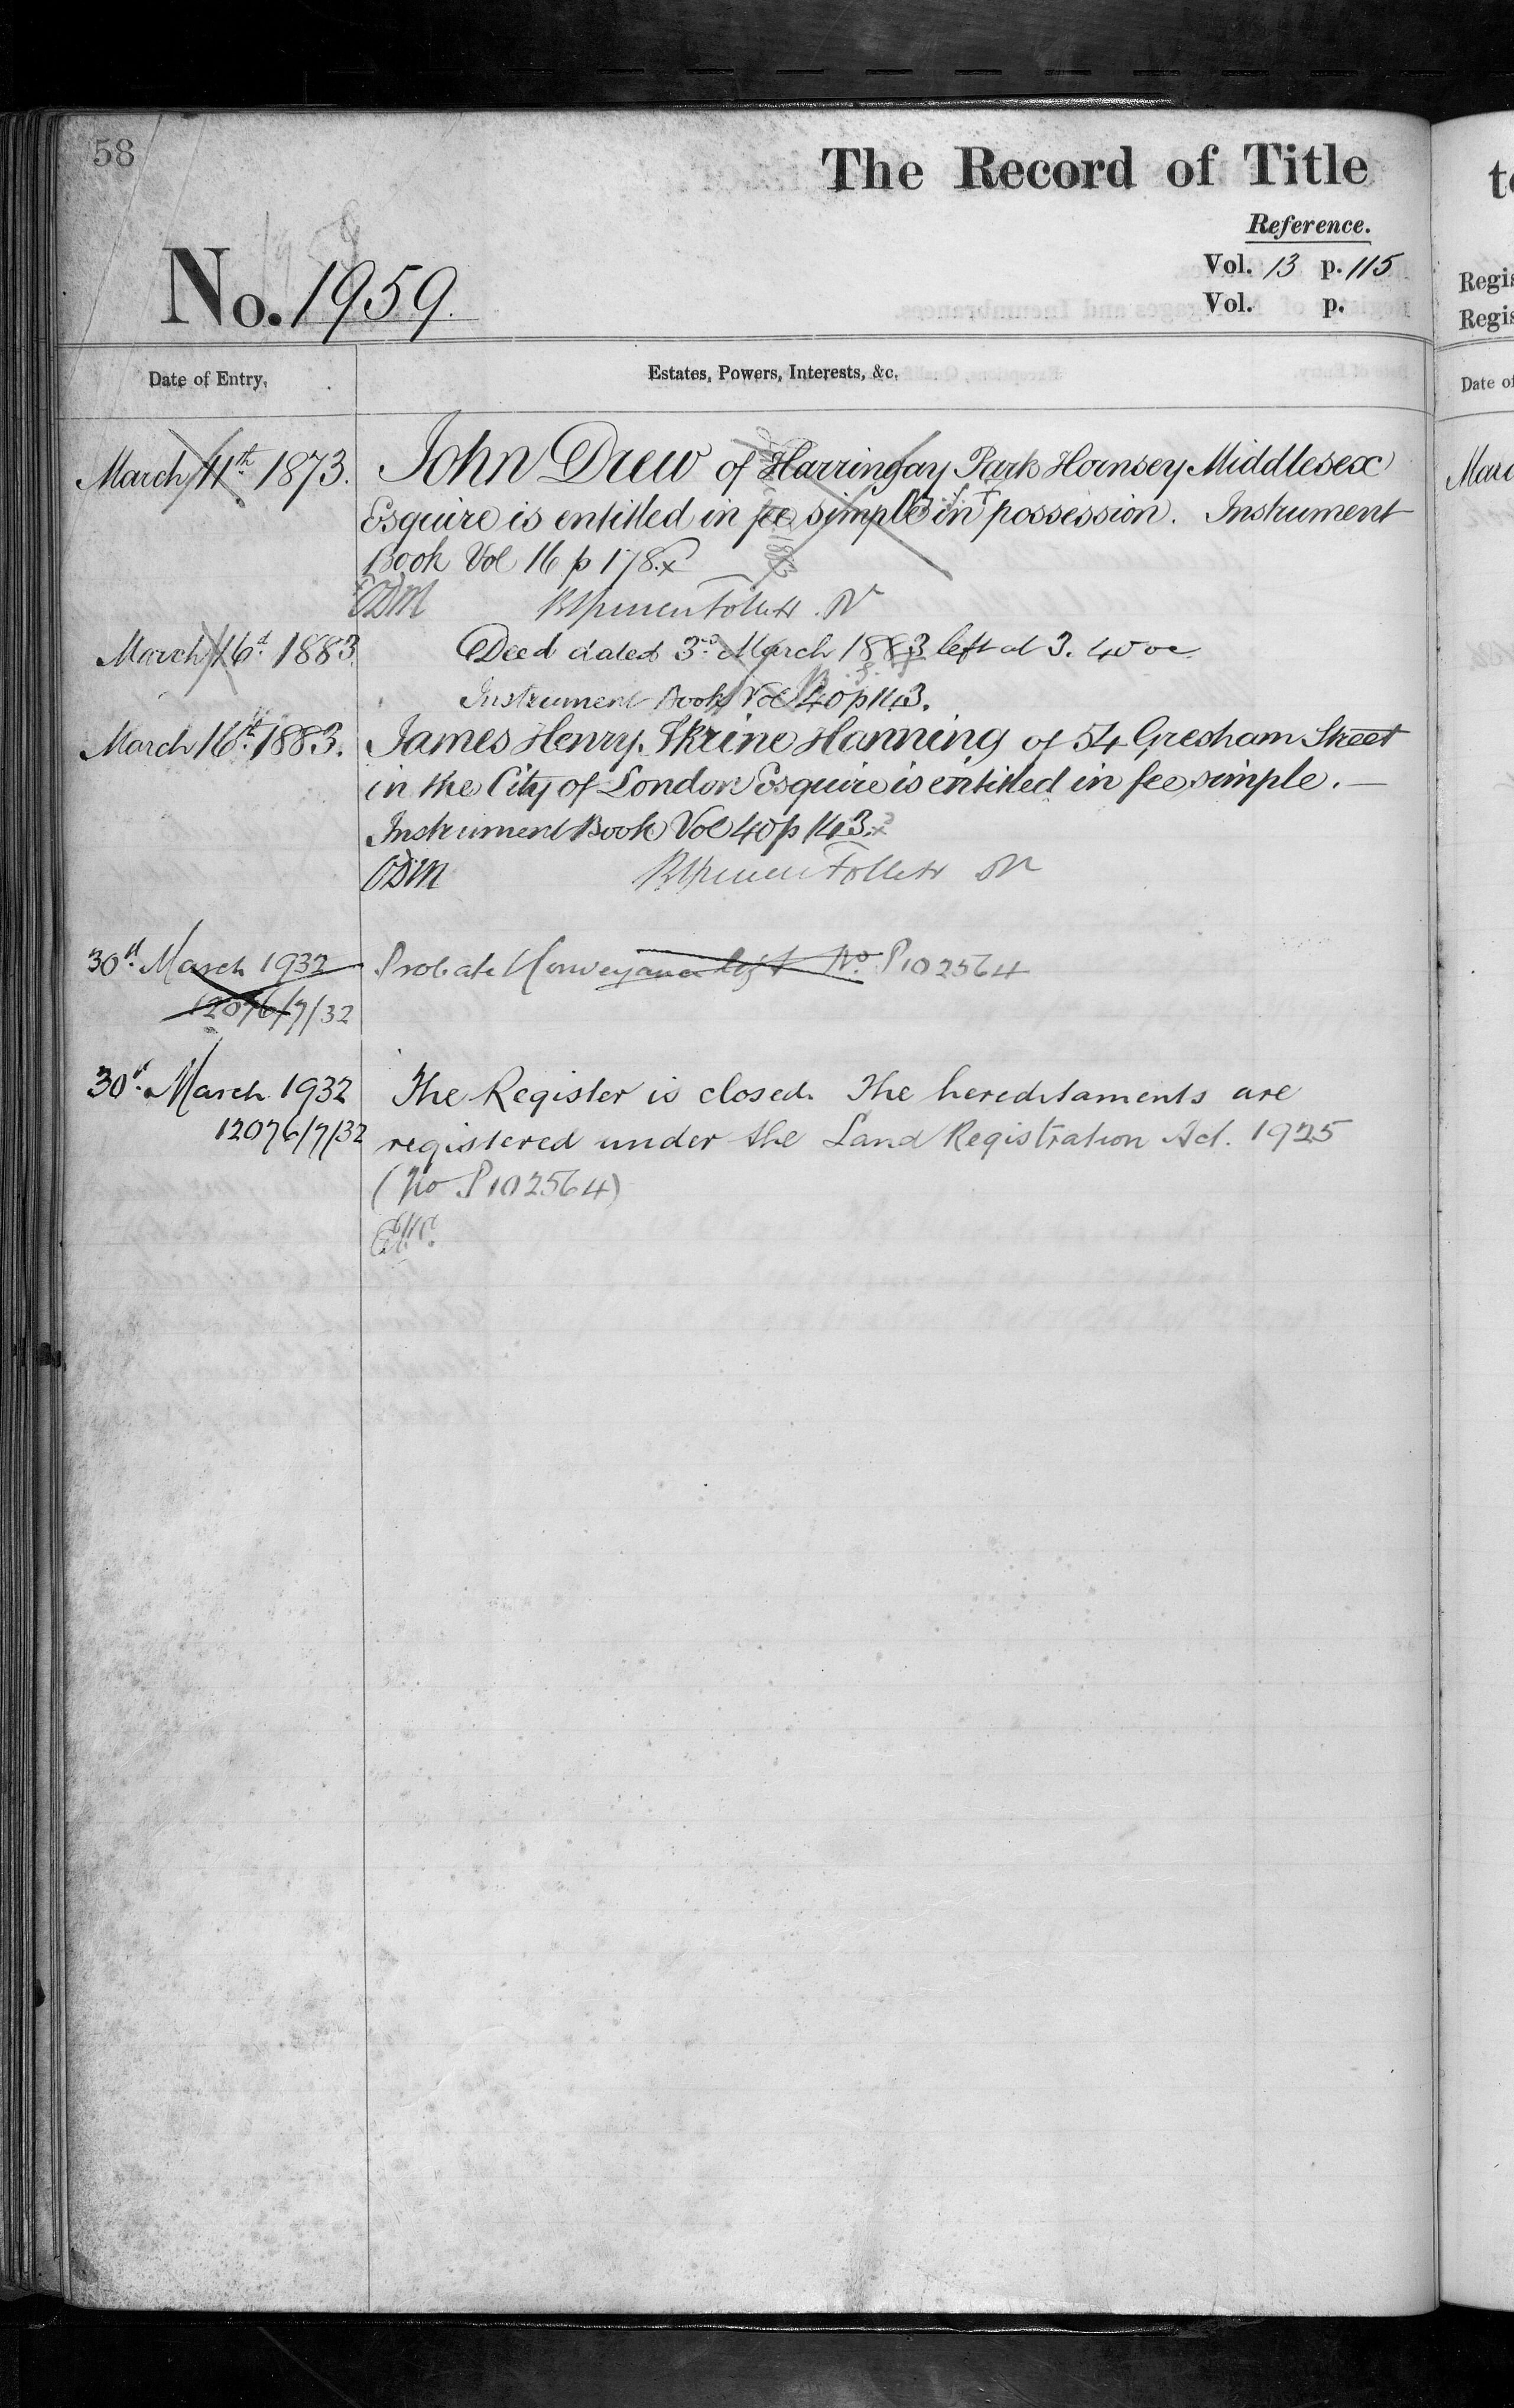 58
The Record of Title
Reference.
Vol. 13 p. 115
Vol. p.
No. 1959.
Date of Entry.
Estates, Powers, Interests, &c.
March 11th 1873.
John Drew of Harringay Park Hornsey Middlesex
Esquire is entitled in fee simple in possession. Instrument
Book Vol 16 p 178.x
ODM
March 16th 1883.
Deed dated 3rd March 1883 left at 3.40
Instrument Book Vol 40 p 143.
March 16th 1883.
James Henry Skrine Hanning of 54 Gresham Street
in the City of London Esquire is entitled in fee simple. —
Instrument Book Vol 40 p 143.x
ODM
30th March 1932
12076/7/32
Probate Conveyance No. P102564
30th March 1932
12076/7/32
The Register is closed. The hereditaments are
registered under the Land Registration Act. 1925
(No P102564)
to
Regis
Regis
Date of
Marc